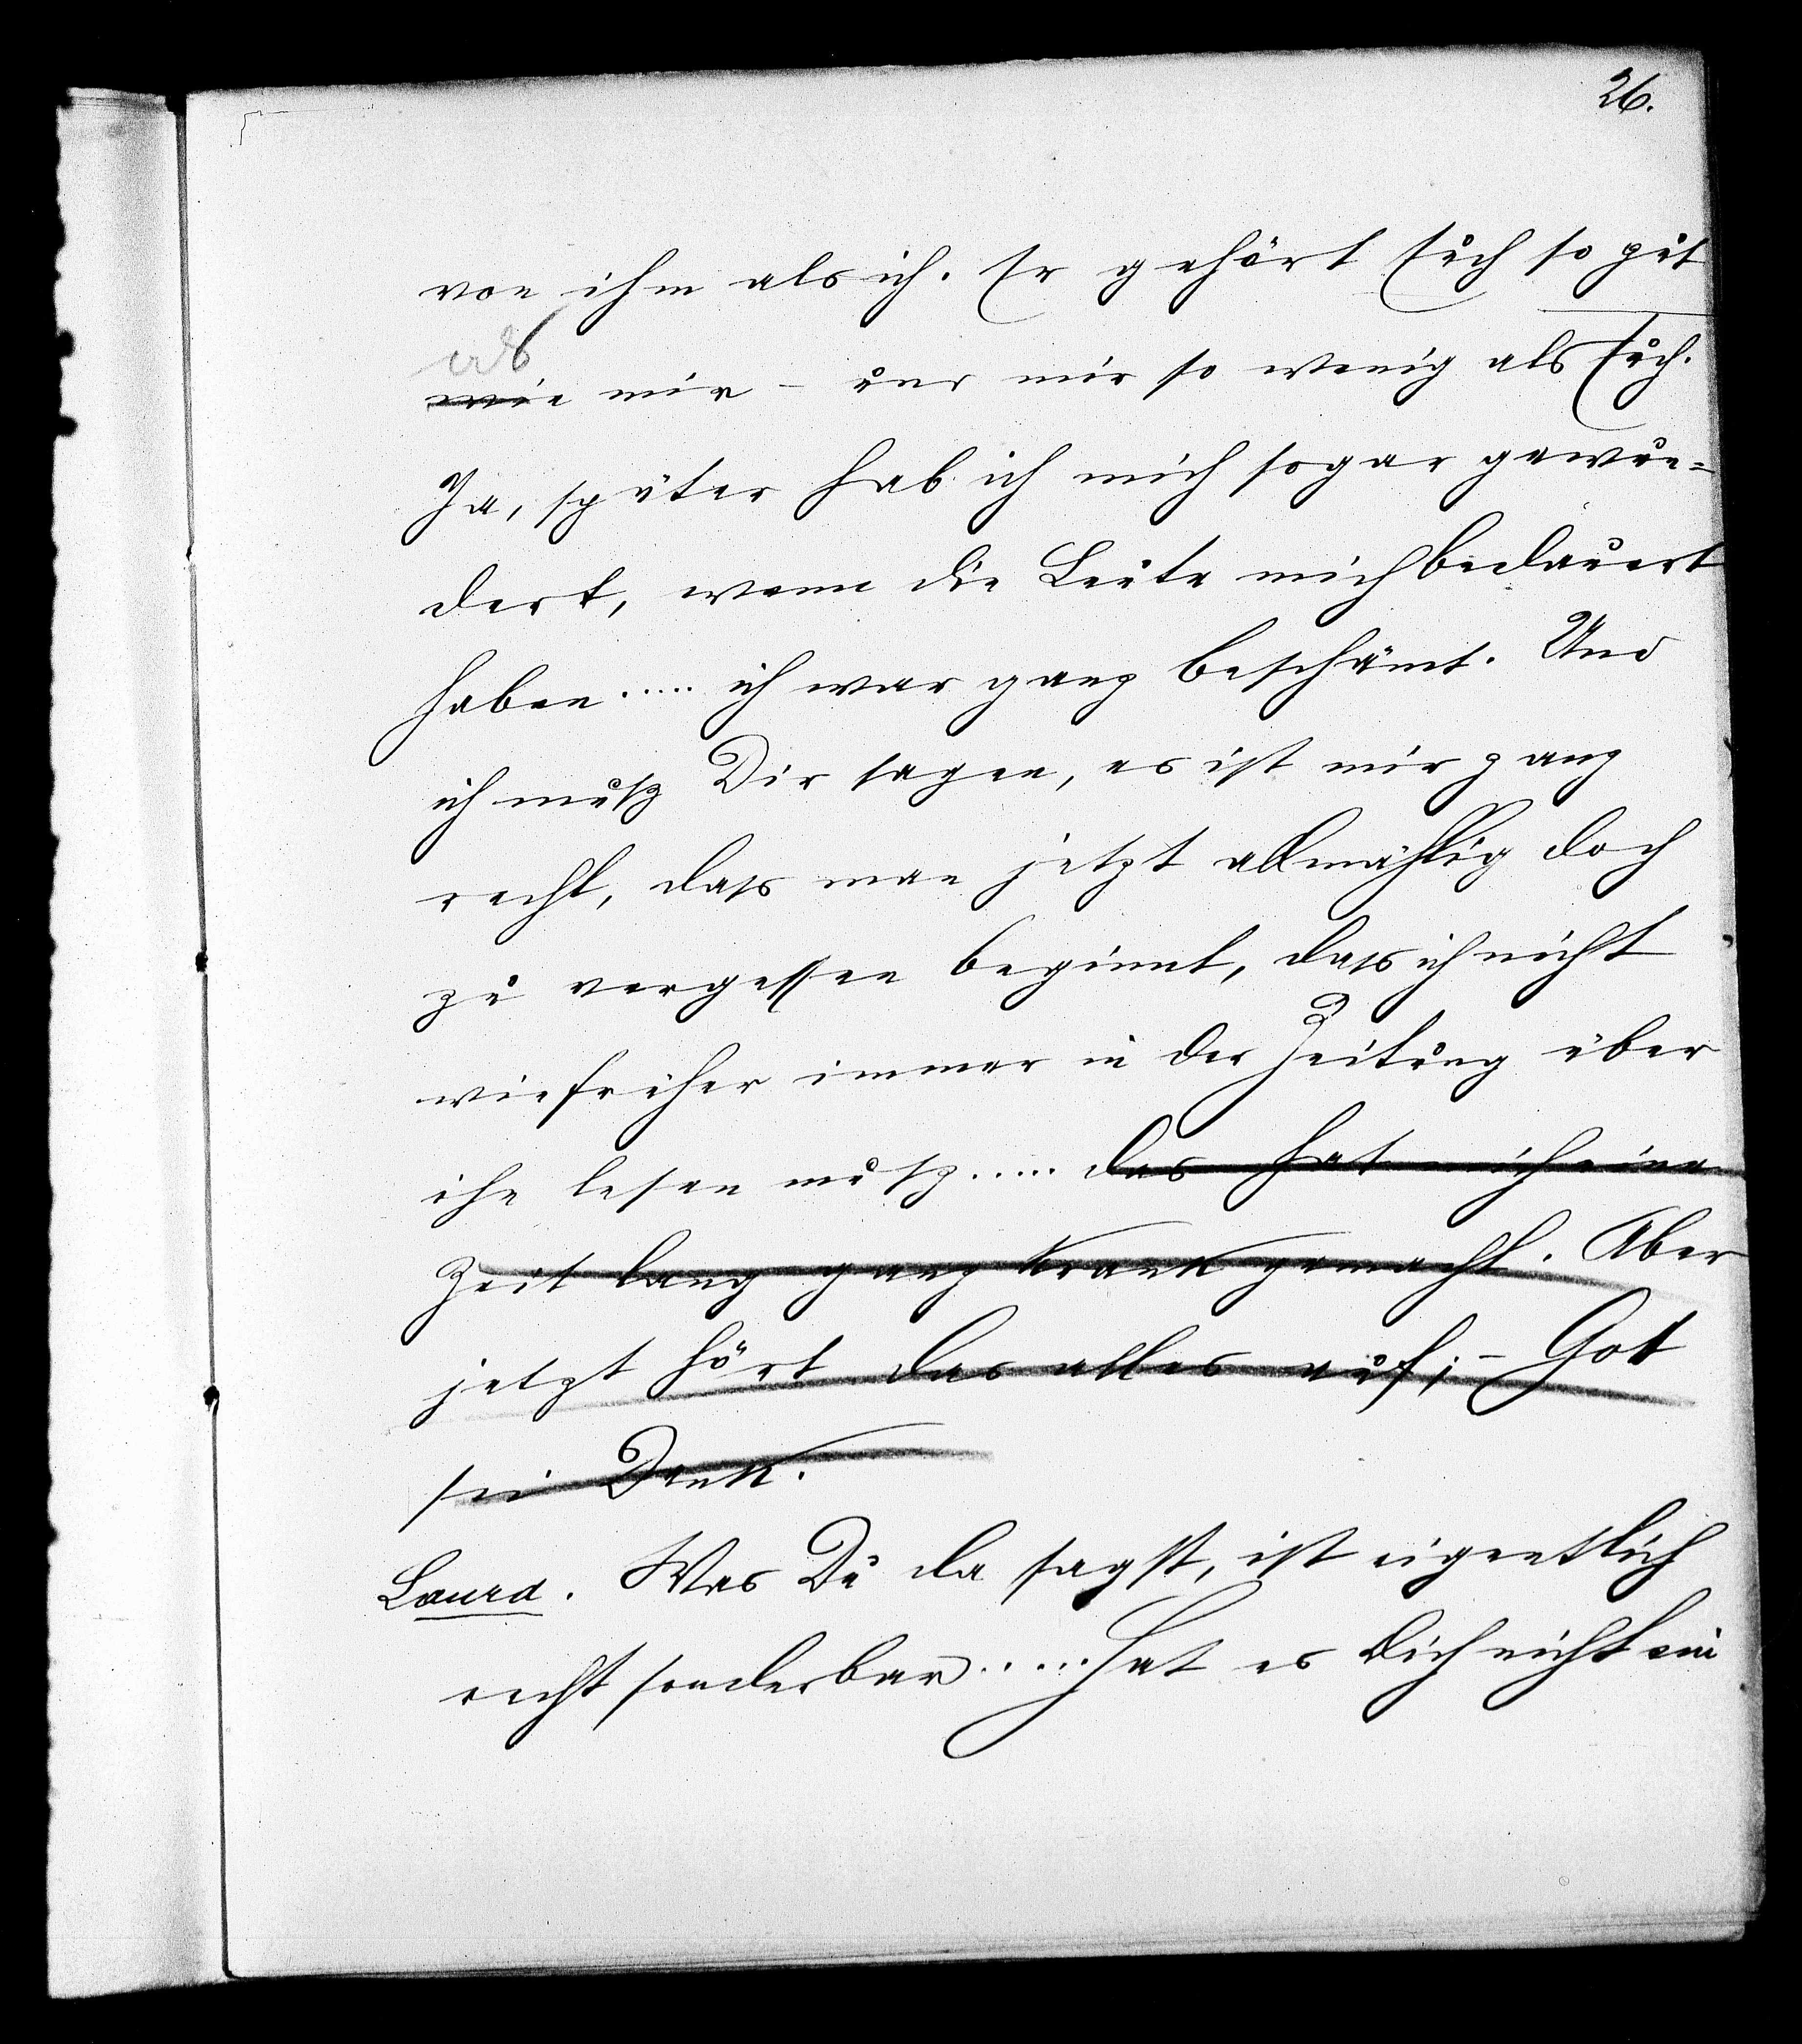 26.
von ihm als ich. Er gehört Euch so gut
als
wie mir – und mir so wenig als Euch.
Ja, später hab ich mich sogar gewun=
dert, wenn die Leute mich bedauert
haben ..... ich war ganz beschämt. Und
ich muß Dir sagen, es ist mir ganz
recht, dass man jetzt allmählig doch
zu vergessen beginnt, dass ich nicht
wie früher immer in der Zeitung über
ihn lesen muß ..... das hat mich eine
Zeit lang ganz krank gemacht. Aber
jetzt hört das alles auf; – Got
sei Dank.
Laura. Was Du da sagst, ist eigentlich
recht sonderbar ..... Hat es Dich nicht ein